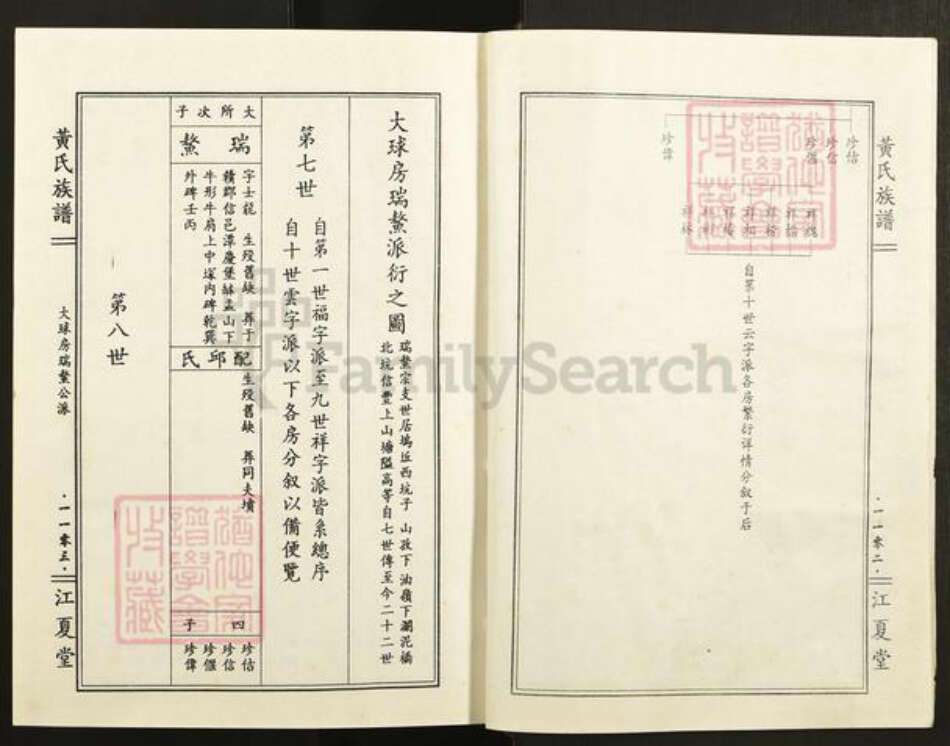 黃氏族譜
一一零二
江夏堂
珍估
珍信
珍偓
珍偉
自第十世云字派各房繁衍详情分叙于后
大球房瑞鰲派衍之圖
瑞鰲宗支世居塢丘西坑子 山孜下 油嶺下瀾泥橋
北坑信豐上山塘隘高等自七世傳至今二十二世
第七世
自第一世福字派至九世祥字派皆系總序
自十世雲字派以下各房分叙以備便覽
文所次子
瑞鰲
字士龍 生歿舊缺 葬于
贛郡信邑潭慶堡缽盂山下
牛形牛肩上中塚内碑乾巽
外碑壬丙
配邱氏
生歿舊缺 葬同夫墳
四子
珍估
珍信
珍偓
珍偉
第八世
黃氏族譜
大球房瑞鰲公派
一一零三
江夏堂
FamilySearch